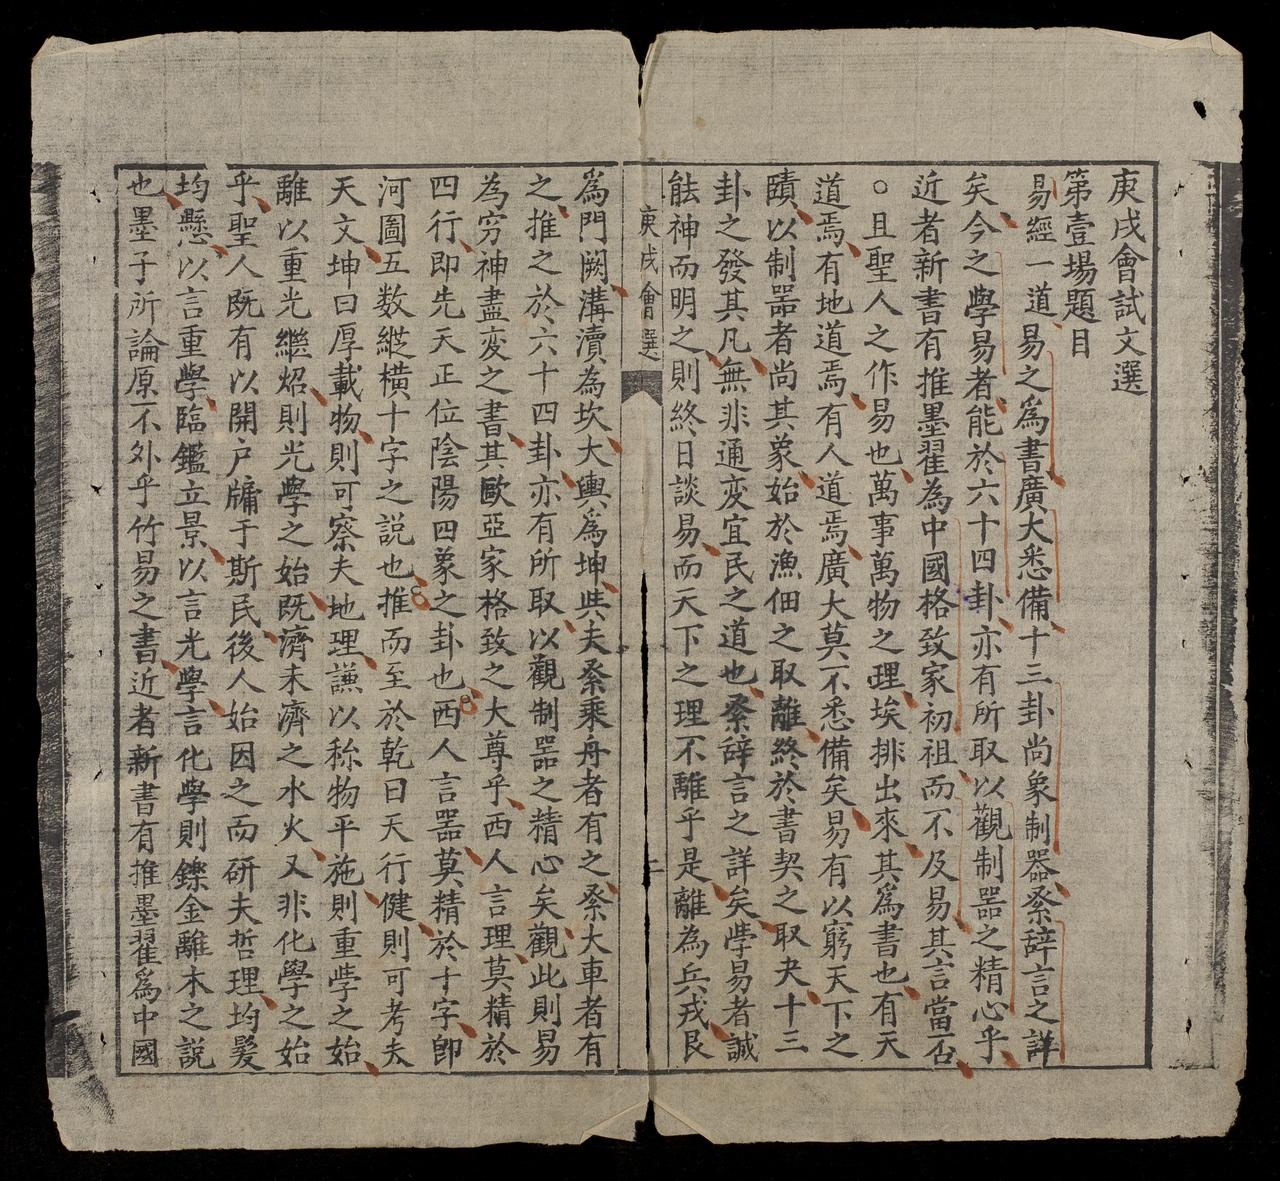 庚戌會試文選
第壹場題目
易經一道易之為書廣大悉備十三卦尚象制器繫辭言之詳
矣今之學易者能於六十四卦亦有所取以觀制器之精心乎
近者新書有推墨翟為中國格致家初祖而不及易其言當否
○且聖人之作易也萬事萬物之理埃排出來其為書也有天
道焉有地道焉有人道焉廣大莫不悉備矣易有以窮天下之
賾以制器者尚其象始於漁佃之取離終於書契之取夬十三
卦之發其凡無非通变宜民之道也繫辭言之詳矣學易者誠
能神而明之則終日談易而天下之理不離乎是離為兵戎艮
庚戌會選
為門闕溝瀆為坎大輿為坤與夫豢乘舟者有之豢大車者有
之推之於六十四卦亦有所取以觀制器之精心矣觀此則易
為穷神盡变之書其歐亞家格致之大尊乎西人言理莫精於
四行即先天正位陰陽四象之卦也西人言器莫精於十字即
河圖五数縱橫十字之説也推而至於乾曰天行健則可考夫
天文坤曰厚載物則可察夫地理謙以称物平施則重學之始
離以重光繼炤則光學之始既濟未濟之水火又非化學之始
乎聖人既有以開户牖于斯民後人始因之而研夫哲理均髮
均懸以言重學臨鑑立景以言光學言化學則鑠金離木之説
也墨子所論原不外乎竹易之書近者新書有推墨翟為中國